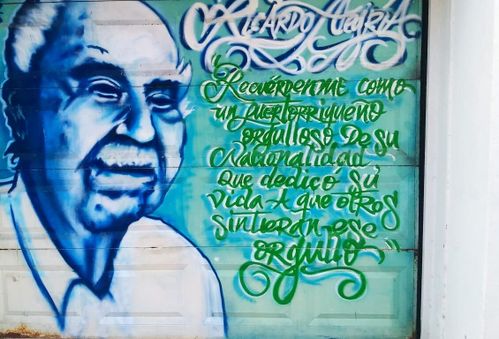 Ricardo Alegría
"Recuérdenme como
un puertorriqueño
orgulloso de su
Nacionalidad
que dedicó su
vida a que otros
sintieran ese
orgullo"